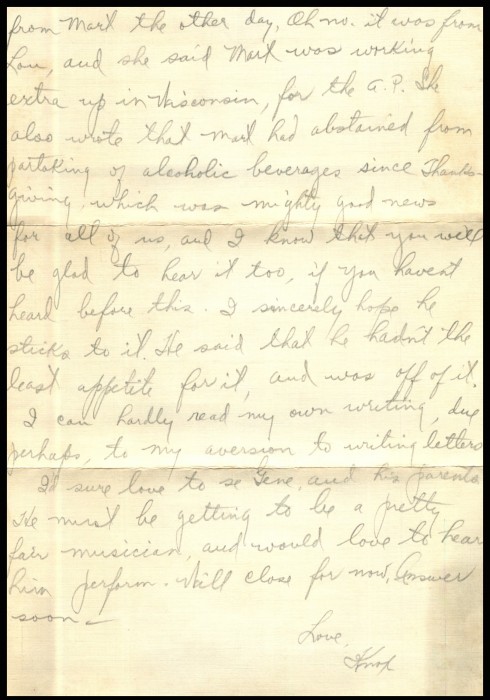 from Mart the other day, Oh no. it was from
Lou, and she said Mart was working
extra up in Wisconsin, for the A.P. She
also wrote that Mart had abstained from
partaking of alcoholic beverages since Thanks-
giving, which was mighty good news
for all of us, and I know that you will
be glad to hear it too, if you havent
heard before this. I sincerely hope he
sticks to it. He said that he hadn't the
least appetite for it, and was off of it.
I can hardly read my own writing, due
perhaps, to my aversion to writing letters
I'd sure love to se Gene, and his parents
He must be getting to be a pretty
fair musician, and would love to hear
him perform. Will close for now, Answer
soon -
Love,
Knox